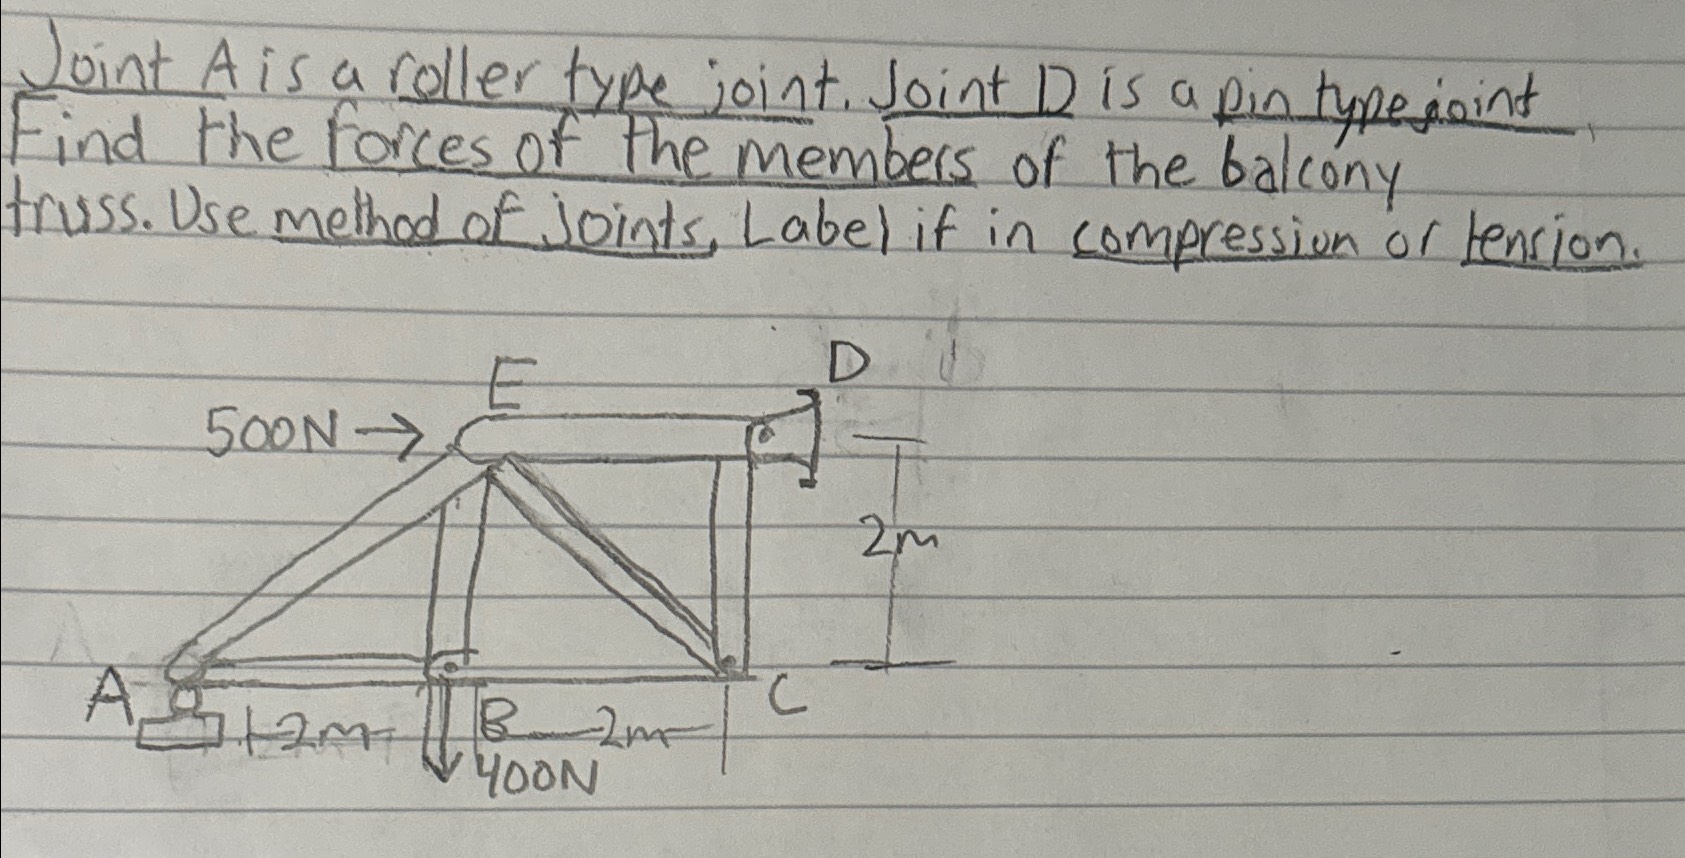 Joint A is a roller type joint. Joint D is a pin type joint.
Find the forces of the members of the balcony
truss. Use method of joints, Label if in compression or tension.
D
E
500N
2m
A
C
2m
B
2m
400N